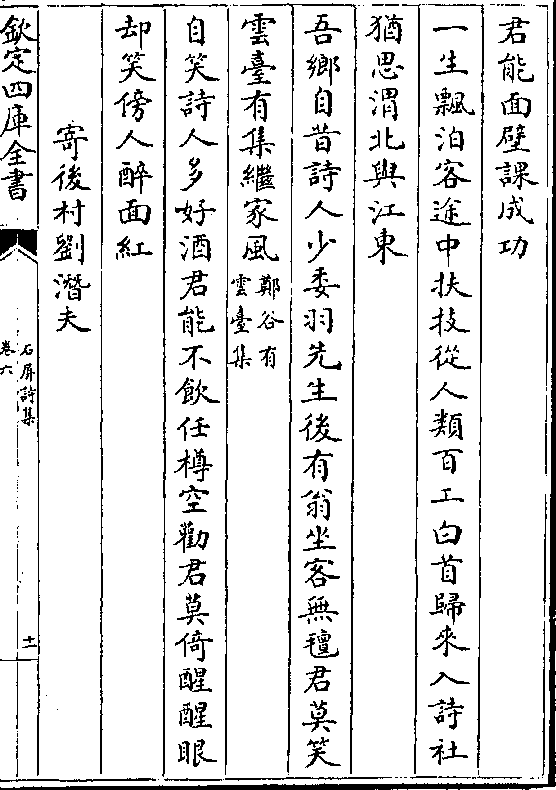 君能面壁課成功
一生飄泊客途中扶技從人類百工白首歸來入詩社
猶思渭北與江東
吾鄉自昔詩人少委羽先生後有翁坐客無氊君莫笑
雲臺有集繼家風鄭谷有雲臺集
自笑詩人多好酒君能不飲任樽空勸君莫倚醒醒眼
却笑傍人醉面紅
寄後村劉潛夫
欽定四庫全書
石屏詩集
卷六
十一